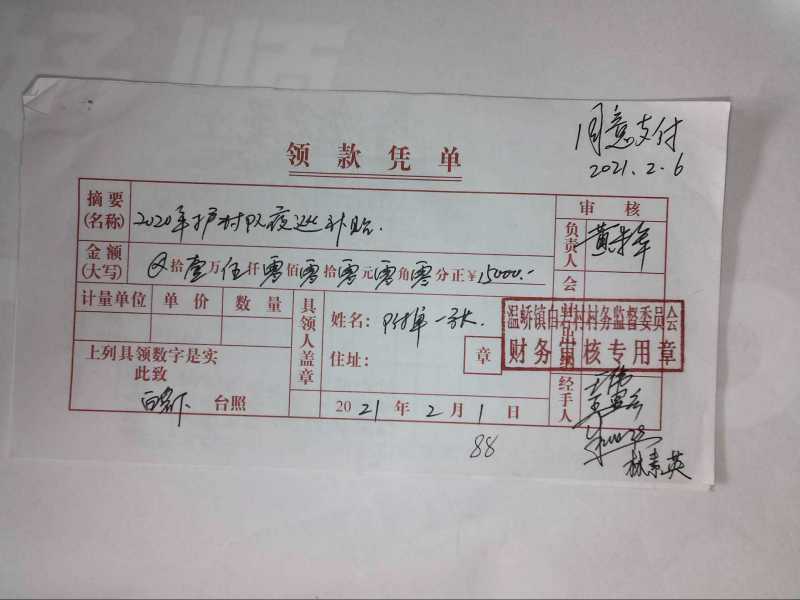 同意支付
2021.2.6
领款凭单
摘要(名称) 2020年护村队夜巡补贴.
审核
负责人
金额(大写) 拾壹万伍仟零佰零拾零元零角零分正¥15000.-
会
计量单位 单价 数量
具领人盖章
姓名：附单一张.
住址：
章
温峤镇白岩村村务监督委员会
财务审核专用章
上列具领数字是实
此致
台照
2021年2月1日
经手人
林素英
88